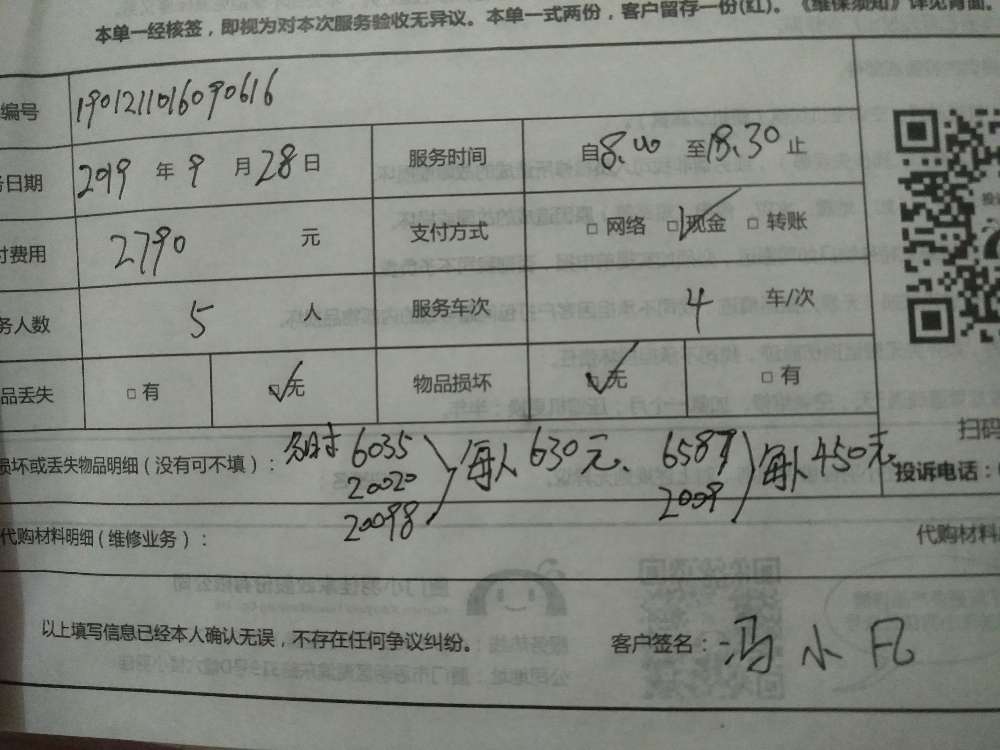 本单一经核签，即视为对本次服务验收无异议。本单一式两份，客户留存一份(红)。《维保须知》详见背面。
编号 1901211016090616
务日期 2019 年 9 月 28 日 服务时间 自 8.00 至 18.30 止
付费用 2790 元 支付方式 □ 网络 □ 现金 □ 转账
务人数 5 人 服务车次 4 车/次
品丢失 □ 有 □ 无 物品损坏 □ 无 □ 有
扫码
损坏或丢失物品明细（没有可不填）： 6035 每人630元、 6587 每人450元
20020 2009
20098
投诉电话：
代购材料明细（维修业务）： 代购材料
以上填写信息已经本人确认无误，不存在任何争议纠纷。 客户签名： 冯小凡